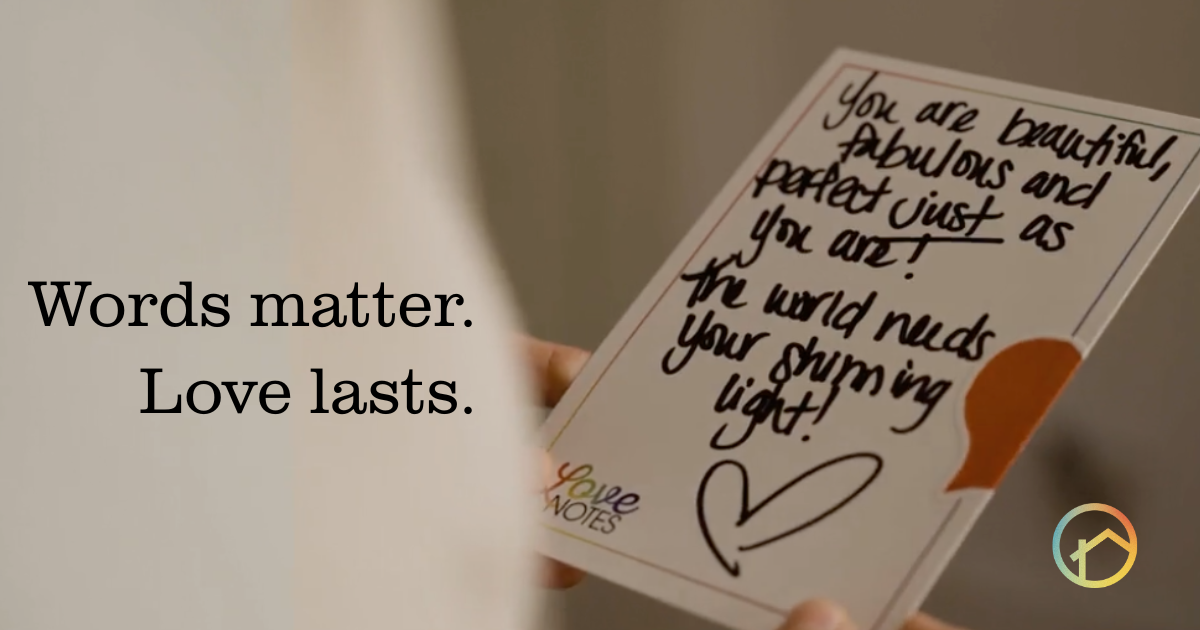 Words matter.
Love lasts.
You are beautiful,
fabulous and
perfect just as
you are!
The world needs
your shinning
light!
Love
NOTES